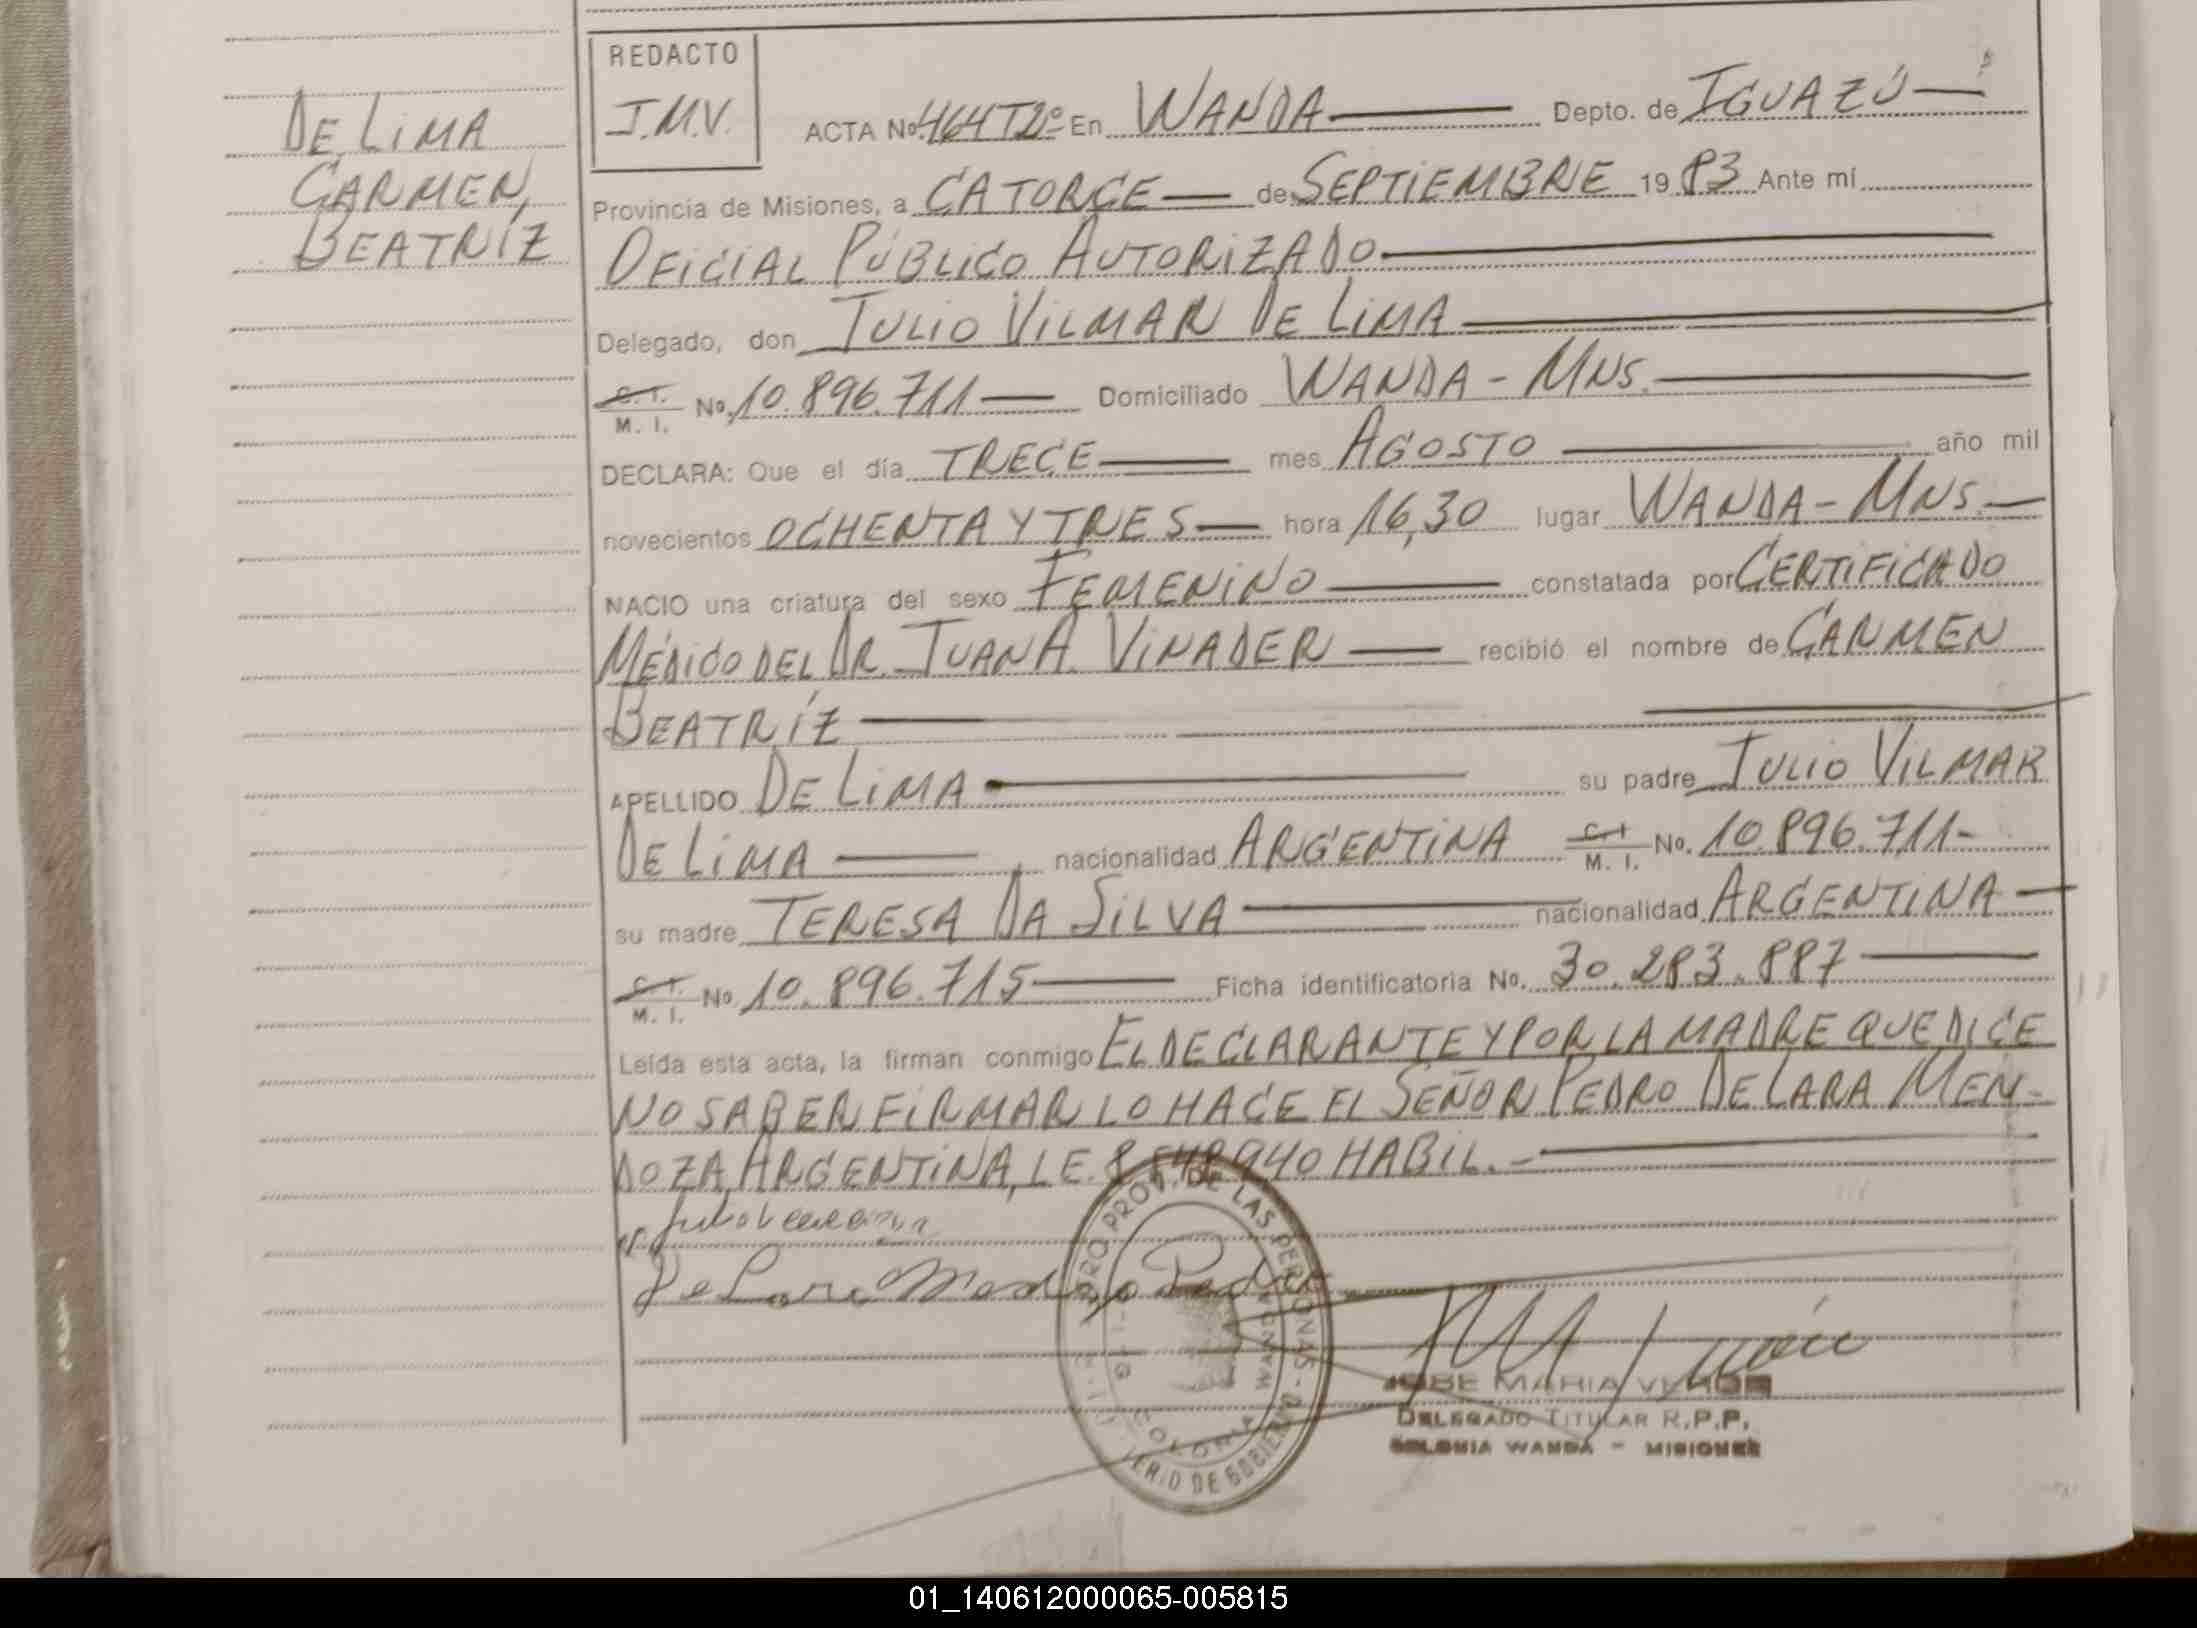 DE LIMA
CARMEN,
BEATRÍZ
REDACTO
J.M.V.
ACTA No. 464 T2º En WANDA Depto. de IGUAZÚ
Provincia de Misiones, a CATORCE de SEPTIEMBRE 1983 Ante mí
OFICIAL PÚBLICO AUTORIZADO
Delegado, don JULIO VILMAR DE LIMA
C. I. M. I. No. 10.896.711 Domiciliado WANDA - MNS.
DECLARA: Que el día TRECE mes AGOSTO año mil
novecientos OCHENTA Y TRES hora 16,30 lugar WANDA - MNS.
NACIO una criatura del sexo FEMENINO constatada por CERTIFICADO
MÉDICO DEL DR. JUAN A. VINADER recibió el nombre de CARMEN
BEATRÍZ
APELLIDO DE LIMA su padre JULIO VILMAR
DE LIMA, nacionalidad ARGENTINA C. I. M. I. No. 10.896.711-
su madre TERESA DA SILVA nacionalidad ARGENTINA
C. I. M. I. No. 10.896.715 Ficha identificatoria No. 30.283.887
Leída esta acta, la firman conmigo EL DECLARANTE Y POR LA MADRE QUE DICE
NO SABER FIRMAR LO HACE EL SEÑOR PEDRO DE LARA MEN-
DOZA, ARGENTINA, L.E. 8.548.940 HABIL.-
De Lara Mendoza Pedro
PROV. DE LAS PERSONAS
COLONIA WANDA
DE GOBIERNO
JOSE MARIA
DELEGADO TITULAR R.P.P.
COLONIA WANDA - MISIONES
01_140612000065-005815